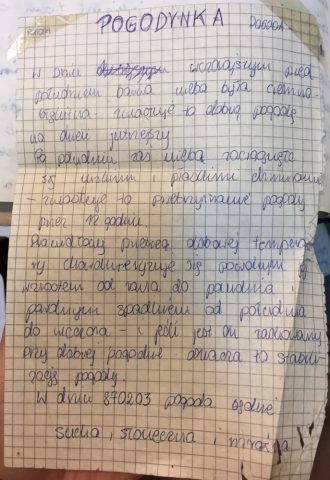 POGODYNKA
POGODA
W dniu wczorajszym przed
południem barwa nieba była ciemno-
błękitna - zwiastuje to dobrą pogodę
na dzień jutrzejszy
Po południu zaś niebo zaciągnęło
się niskimi i chmurami
- zwiastuje to pogody
przez 12 godzin.
Prawidłowy przebieg dobowej tempera-
ry charakteryzuje się powolnym jej
wzrostem od rana do południa i
powolnym spadkiem od południa
do wieczora - i jeśli jest on zachowany
przy dobrej pogodzie oznacza to stabili-
zację pogody.
W dniu 870203 pogoda będzie
sucha, słoneczna i mroźna